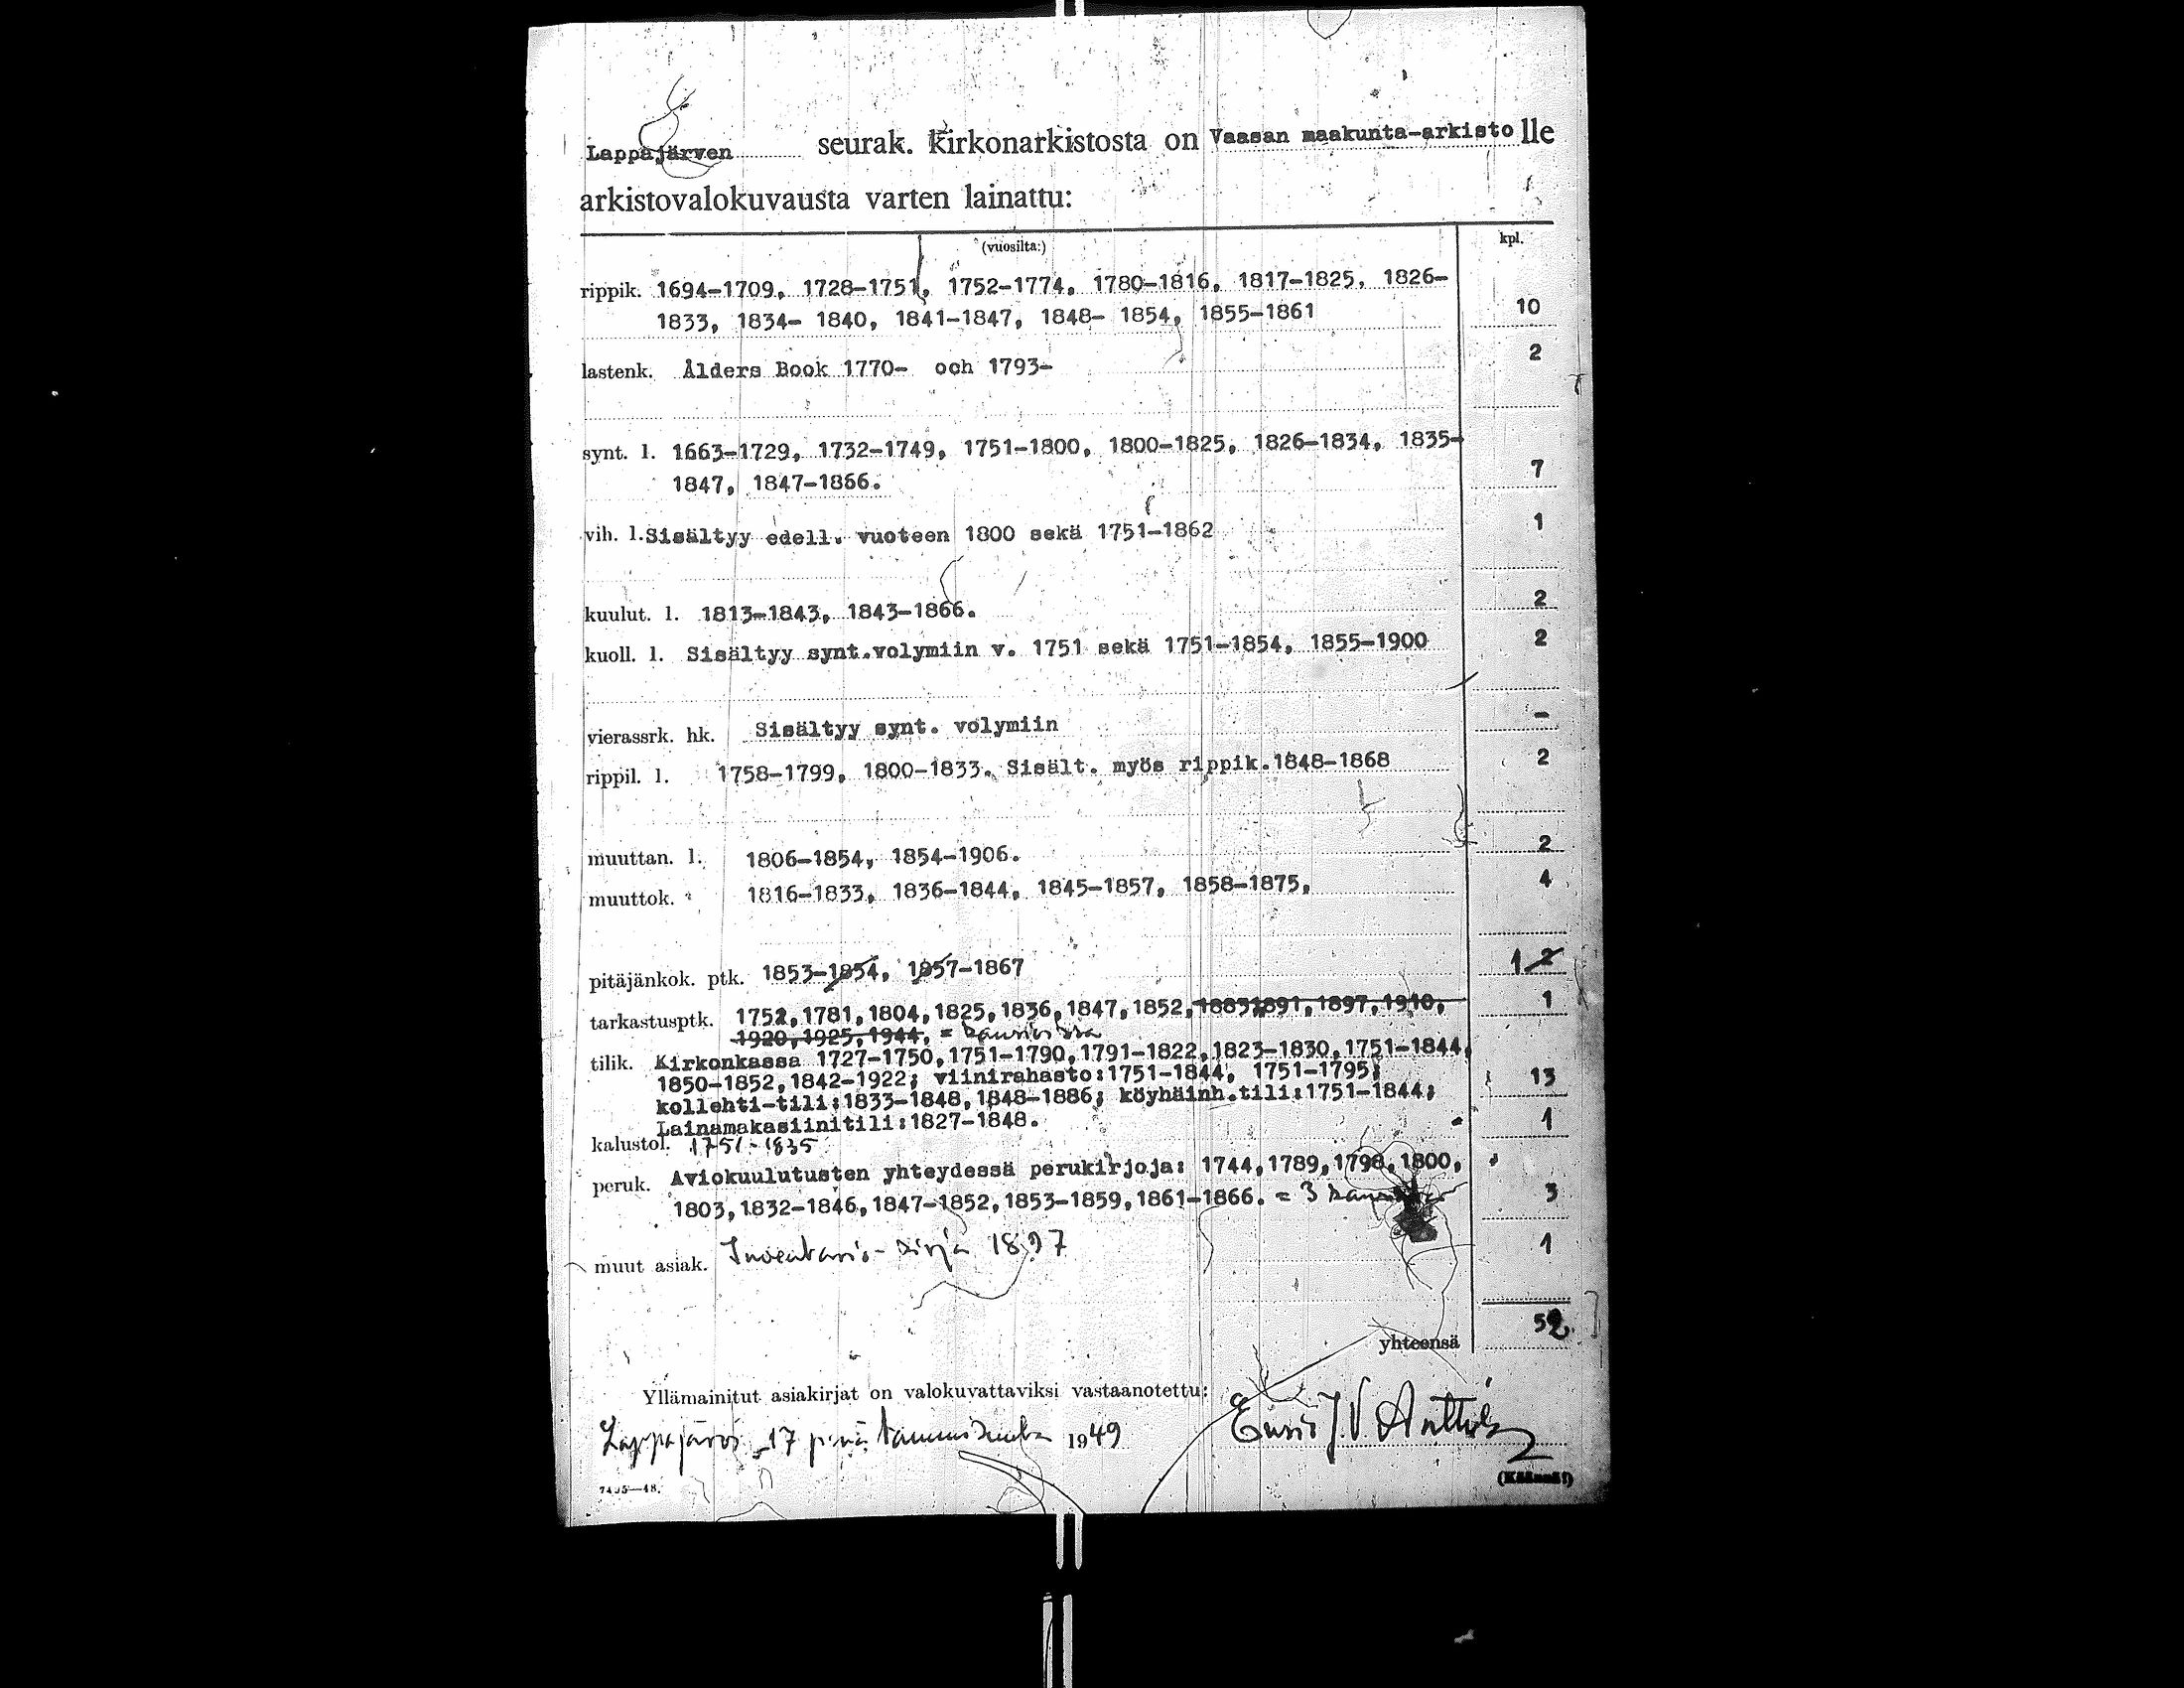 Lappajärven seurak. kirkonarkistosta on Vaasan maakunta-arkisto lle
arkistovalokuvausta varten lainattu:
(vuosilta:) kpl.
rippik. 1694-1709, 1728-1751, 1752-1774, 1780-1816, 1817-1825, 1826-
1833, 1834- 1840, 1841-1847, 1848- 1854, 1855-1861 10
lastenk. Ålders Book 1770- och 1793- 2
synt. l. 1663-1729, 1732-1749, 1751-1800, 1800-1825, 1826-1834, 1835-
1847, 1847-1866. 7
vih. l. Sisältyy edell. vuoteen 1800 sekä 1751-1862 1
kuulut. l. 1813-1843, 1843-1866. 2
kuoll. l. Sisältyy synt.volymiin v. 1751 sekä 1751-1854, 1855-1900 2
vierassrk. hk. Sisältyy synt. volymiin -
rippil. l. 1758-1799, 1800-1833. Sisält. myös rippik.1848-1868 2
muuttan. l. 1806-1854, 1854-1906. 2
muuttok. 1816-1833, 1836-1844, 1845-1857, 1858-1875, 4
pitäjänkok. ptk. 1853-1854, 1857-1867 1 2
tarkastusptk. 1752,1781,1804,1825,1836,1847,1852,1883,1891,1897,1910, 1
1920,1925,1944, =
tilik. Kirkonkassa 1727-1750,1751-1790,1791-1822,1823-1830,1751-1844,
1850-1852,1842-1922; viinirahasto:1751-1844, 1751-1795; 13
kollehti-tili:1833-1848,1848-1886; köyhäinh.tili:1751-1844;
Lainamakasiinitili:1827-1848. 1
kalustol. 1751-1835
peruk. Aviokuulutusten yhteydessä perukirjoja: 1744,1789,1798,1800,
1803,1832-1846,1847-1852,1853-1859,1861-1866. = 3 3
muut asiak. Inventario-kirja 1897 1
yhteensä 52
Yllämainitut asiakirjat on valokuvattaviksi vastaanotettu:
Lappajärvi 17 p:nä tammikuuta 1949 J.V. Anttila
(Käännä!)
7435—48.